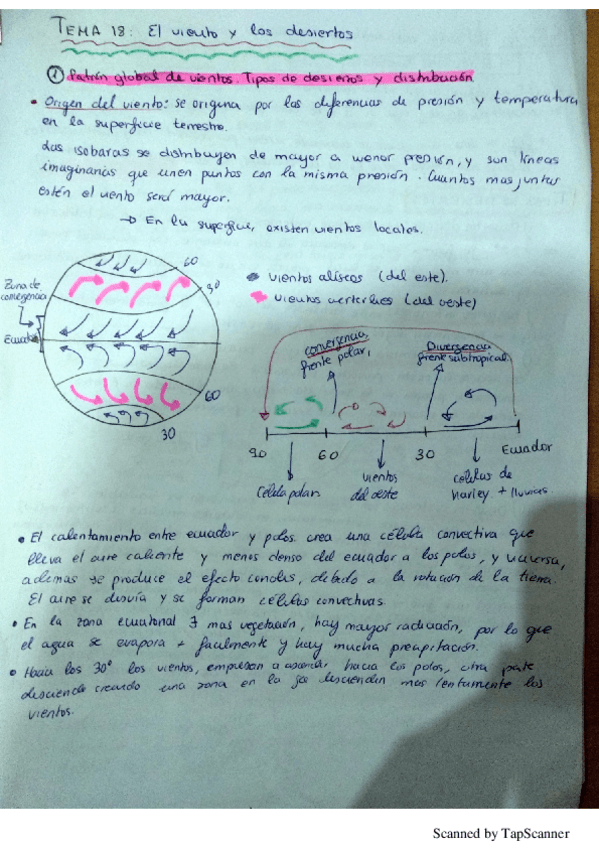 TEMA 18: El viento y los desiertos
① Patrón global de vientos. Tipos de desiertos y distribución
• Origen del viento: se origina por las diferencias de presión y temperatura
en la superficie terrestre.
Las isobaras se distribuyen de mayor a menor presión, y son líneas
imaginarias que unen puntos con la misma presión. Cuantos mas juntas
estén el viento será mayor.
→ En la superficie, existen vientos locales.
Zona de
convergencia
Ecuador
60
30
60
30
vientos alíseos (del este).
vientos (del oeste)
convergencia,
frente polar,
Divergencia
frente subtropical.
90
60
30
Ecuador
Célula polar
vientos
del oeste
células de
Harley. + lluvias.
• El calentamiento entre ecuador y polos crea una célula convectiva que
lleva el aire caliente y menos denso del ecuador a los polos, y viceversa,
ademas se produce el efecto coriolis, debido a la rotación de la tierra.
El aire se desvía y se forman células convectivas.
• En la zona ecuatorial ∃ mas vegetación, hay mayor radiación, por lo que
el agua se evapora + facilmente y hay mucha precipitación.
• Hacia los 30° los vientos, empiezan a ascender hacia los polos, otra parte
desciende creando una zona en la que descienden mas lentamente los
vientos.
Scanned by TapScanner